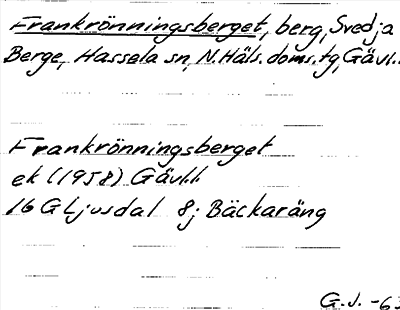 Frankrönningsberget, berg, Svedja
Berge, Hassela sn, N. Häls. doms. tg, Gävl.
Frankrönningsberget
ek (1958) Gävl.l.
16 G Ljusdal 8j Bäckaräng
G.J. -63